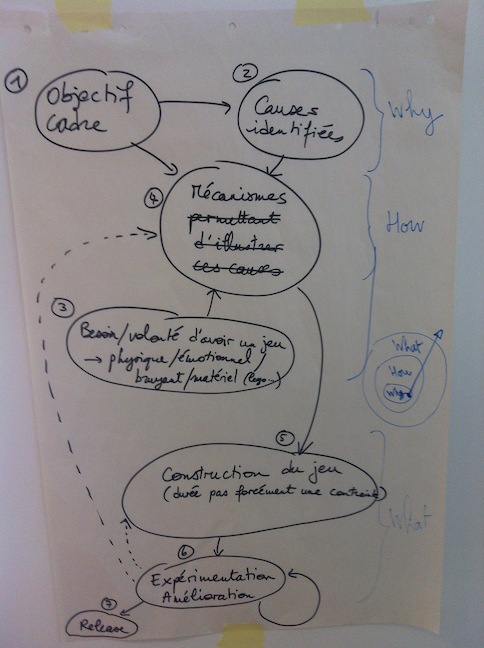 1
Objectif
Cadre
2
Causes
identifiées
Why
4
Mécanismes
permettant
d'illustrer
ces causes
How
3
Besoin/volonté d'avoir un jeu
→ physique/émotionnel/
bruyant/matériel (lego...)
What
How
Why
5
Construction du jeu
(durée pas forcément une contrainte)
What
6
Expérimentation
Amélioration
7
Release